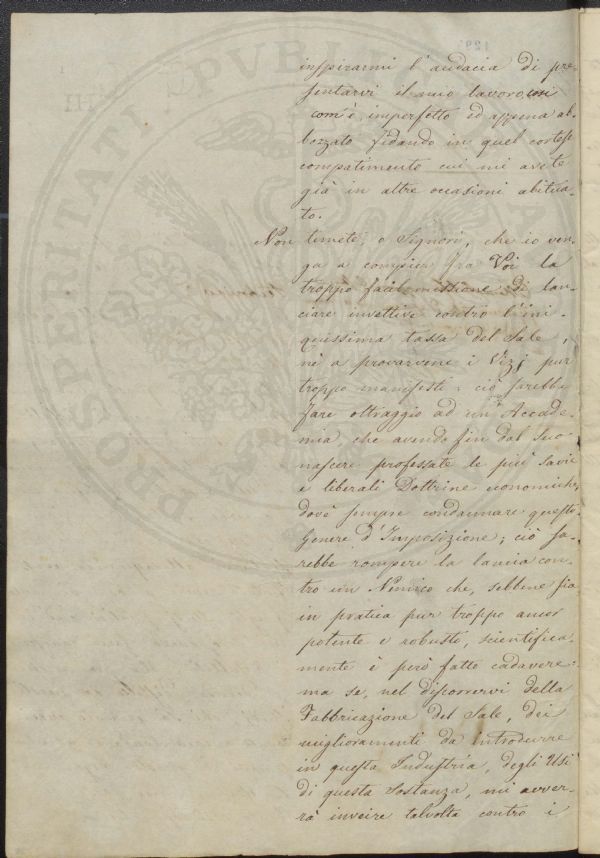 inspirarmi l'audacia di pre-
sentarvi il mio lavoro, così
com'è, imperfetto ed appena ab-
bozzato fidando in quel cortese
compatimento cui mi avete
già in altre occasioni abitua-
to.
Non temete, o Signori, che io ven-
ga a compier fra Voi la
troppo facil missione di lan-
ciare invettive contro l'ini-
quissima tassa del Sale,
nè a provarvene i Vizj pur
troppo manifesti: ciò sarebbe
fare oltraggio ad un'Accade-
mia, che avendo fin dal suo
nascere professate le più savie
e liberali Dottrine economiche,
dovè sempre condannare questo
Genere d'Imposizione; ciò sa-
rebbe rompere la lancia con-
tro un Nemico che, sebbene sia
in pratica pur troppo ancor
potente e robusto, scientifica-
mente è però fatto cadavere:
ma se, nel discorrervi della
Fabbricazione del Sale, dei
miglioramenti da introdurre
in questa Industria, degli Usi
di questa Sostanza, mi avver-
rà inveire talvolta contro i